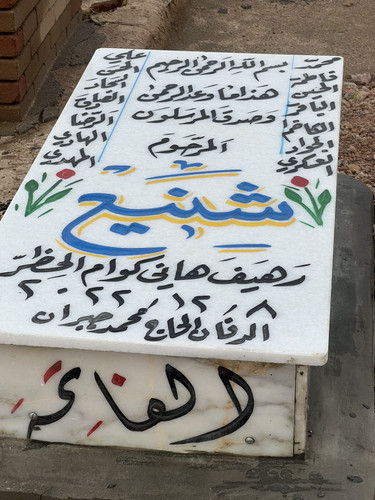 بسم الله الرحمن الرحيم
هذا ما وعد الرحمن
وصدق المرسلون
المرحوم
محمد
فاطمة
الحسين
الباقر
الكاظم
الجواد
العسكري
علي
الحسن
السجاد
الصادق
الرضا
الهادي
المهدي
شنيع
رهيف هاني كوام
٨ ١٢ ٢٠٢٢
الدفان الحاج محمد جبران